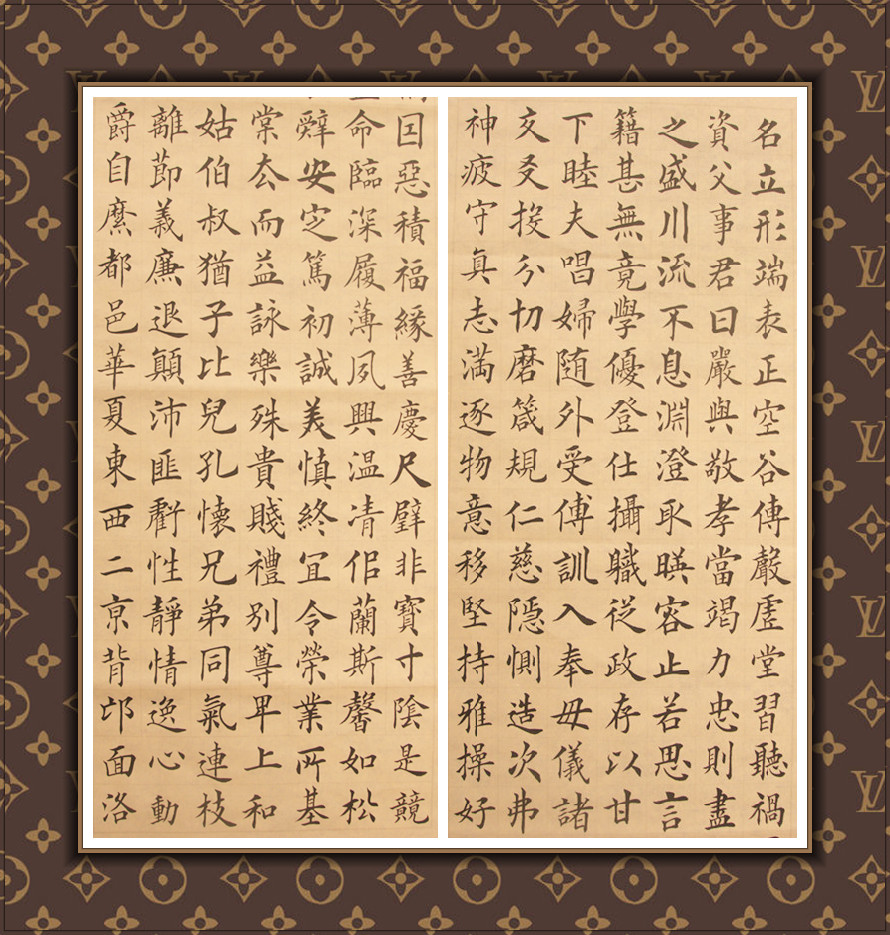 名立形端表正空谷傳聲虛堂習聽禍
資父事君曰嚴與敬孝當竭力忠則盡
之盛川流不息淵澄取暎容止若思言
籍甚無竟學優登仕攝職從政存以甘
下睦夫唱婦随外受傅訓入奉母儀諸
交友投分切磨箴規仁慈隱惻造次弗
神疲守真志滿逐物意移堅持雅操好
因惡積福緣善慶尺璧非寶寸陰是競
命臨深履薄夙興温凊佀蘭斯馨如松
辭安定篤初誠美慎終宜令榮業所基
棠去而益詠樂殊貴賤禮別尊卑上和
姑伯叔猶子比兒孔懷兄弟同氣連枝
離節義廉退顛沛匪虧性靜情逸心動
爵自縻都邑華夏東西二京背邙面洛